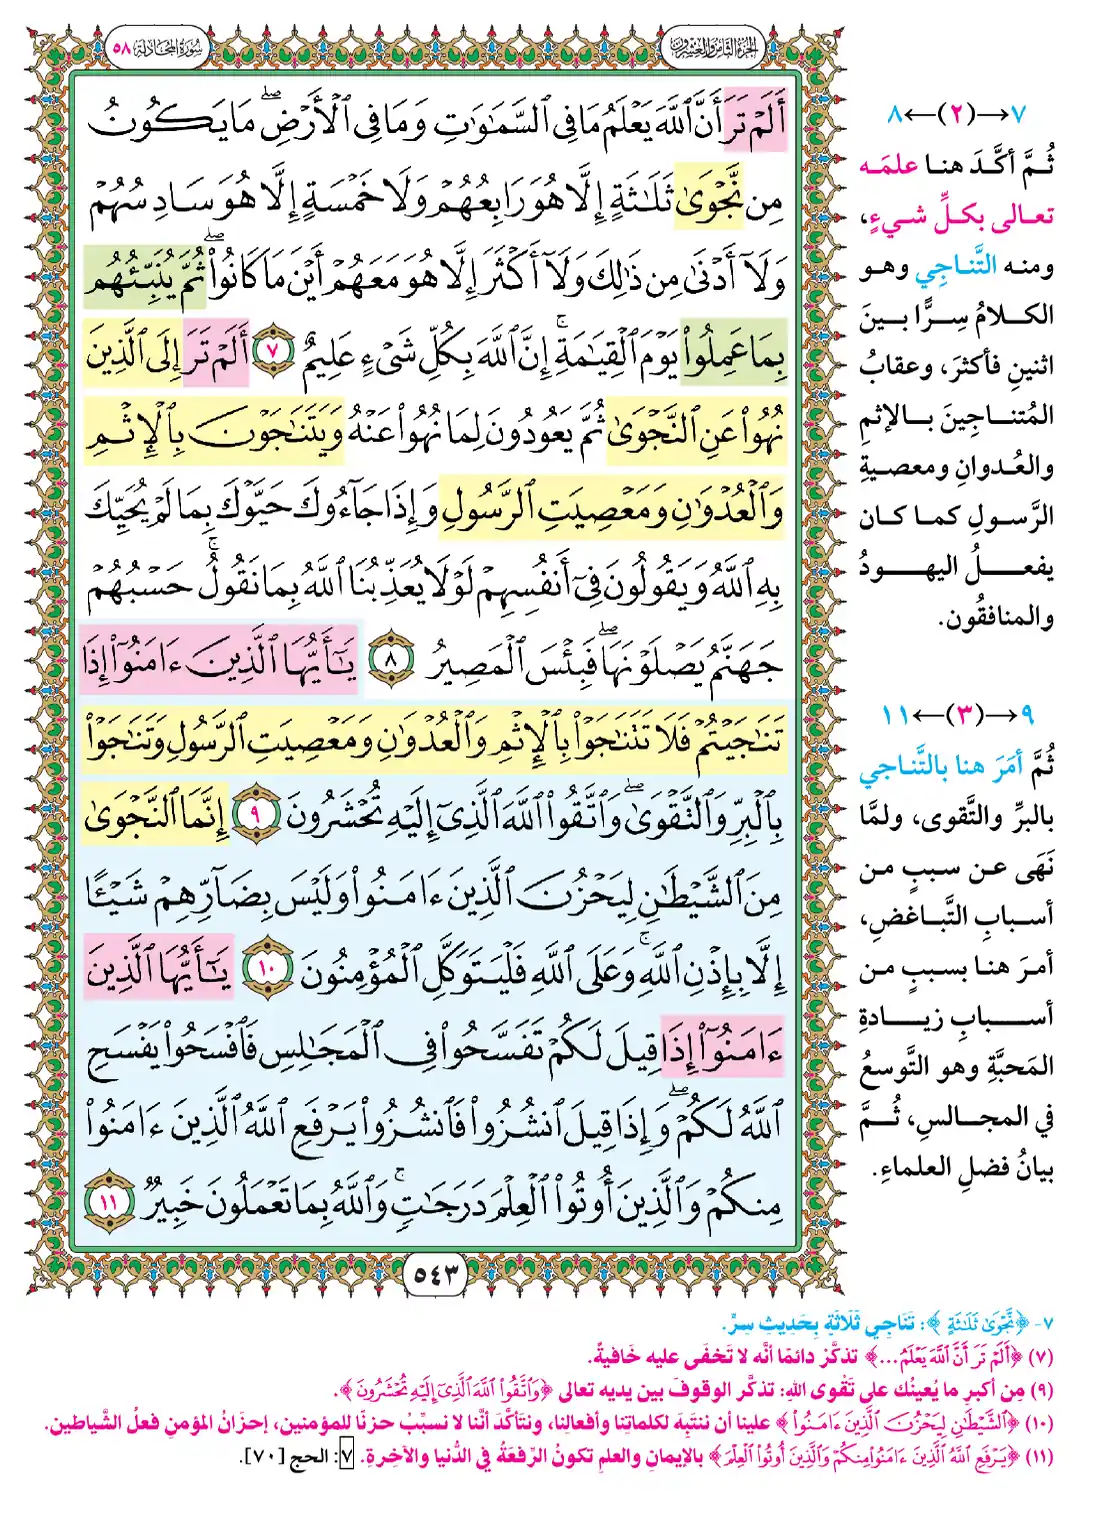 الجزء الثامن والعشرون
سورة المجادلة ٥٨
أَلَمْ تَرَ أَنَّ ٱللَّهَ يَعْلَمُ مَا فِى ٱلسَّمَٰوَٰتِ وَمَا فِى ٱلْأَرْضِ ۖ مَا يَكُونُ
مِن نَّجْوَىٰ ثَلَٰثَةٍ إِلَّا هُوَ رَابِعُهُمْ وَلَا خَمْسَةٍ إِلَّا هُوَ سَادِسُهُمْ
وَلَآ أَدْنَىٰ مِن ذَٰلِكَ وَلَآ أَكْثَرَ إِلَّا هُوَ مَعَهُمْ أَيْنَ مَا كَانُوا۟ ۖ ثُمَّ يُنَبِّئُهُم
بِمَا عَمِلُوا۟ يَوْمَ ٱلْقِيَٰمَةِ ۚ إِنَّ ٱللَّهَ بِكُلِّ شَىْءٍ عَلِيمٌ ٧ أَلَمْ تَرَ إِلَى ٱلَّذِينَ
نُهُوا۟ عَنِ ٱلنَّجْوَىٰ ثُمَّ يَعُودُونَ لِمَا نُهُوا۟ عَنْهُ وَيَتَنَٰجَوْنَ بِٱلْإِثْمِ
وَٱلْعُدْوَٰنِ وَمَعْصِيَتِ ٱلرَّسُولِ وَإِذَا جَآءُوكَ حَيَّوْكَ بِمَا لَمْ يُحَيِّكَ
بِهِ ٱللَّهُ وَيَقُولُونَ فِىٓ أَنفُسِهِمْ لَوْلَا يُعَذِّبُنَا ٱللَّهُ بِمَا نَقُولُ ۚ حَسْبُهُمْ
جَهَنَّمُ يَصْلَوْنَهَا ۖ فَبِئْسَ ٱلْمَصِيرُ ٨ يَٰٓأَيُّهَا ٱلَّذِينَ ءَامَنُوٓا۟ إِذَا
تَنَٰجَيْتُمْ فَلَا تَتَنَٰجَوْا۟ بِٱلْإِثْمِ وَٱلْعُدْوَٰنِ وَمَعْصِيَتِ ٱلرَّسُولِ وَتَنَٰجَوْا۟
بِٱلْبِرِّ وَٱلتَّقْوَىٰ ۖ وَٱتَّقُوا۟ ٱللَّهَ ٱلَّذِىٓ إِلَيْهِ تُحْشَرُونَ ٩ إِنَّمَا ٱلنَّجْوَىٰ
مِنَ ٱلشَّيْطَٰنِ لِيَحْزُنَ ٱلَّذِينَ ءَامَنُوا۟ وَلَيْسَ بِضَآرِّهِمْ شَيْـًٔا
إِلَّا بِإِذْنِ ٱللَّهِ ۚ وَعَلَى ٱللَّهِ فَلْيَتَوَكَّلِ ٱلْمُؤْمِنُونَ ١٠ يَٰٓأَيُّهَا ٱلَّذِينَ
ءَامَنُوٓا۟ إِذَا قِيلَ لَكُمْ تَفَسَّحُوا۟ فِى ٱلْمَجَٰلِسِ فَٱفْسَحُوا۟ يَفْسَحِ
ٱللَّهُ لَكُمْ ۖ وَإِذَا قِيلَ ٱنشُزُوا۟ فَٱنشُزُوا۟ يَرْفَعِ ٱللَّهُ ٱلَّذِينَ ءَامَنُوا۟
مِنكُمْ وَٱلَّذِينَ أُوتُوا۟ ٱلْعِلْمَ دَرَجَٰتٍ ۚ وَٱللَّهُ بِمَا تَعْمَلُونَ خَبِيرٌ ١١
٥٤٣
٧→(٢)←٨
ثُمَّ أكَّدَ هنا علمَه
تعالى بكلِّ شيءٍ،
ومنه التَّناجِي وهو
الكلامُ سِرًّا بينَ
اثنينِ فأكثرَ، وعقابُ
المُتناجِينَ بالإثمِ
والعُدوانِ ومعصيةِ
الرَّسولِ كما كان
يفعلُ اليهودُ
والمنافقُون.
٩→(٣)←١١
ثُمَّ أمَرَ هنا بالتَّناجي
بالبرِّ والتَّقوى، ولمَّا
نَهَى عن سببٍ من
أسبابِ التَّباغضِ،
أمرَ هنا بسببٍ من
أسبابِ زيادةِ
المَحبَّةِ وهو التَّوسعُ
في المجالسِ، ثُمَّ
بيانُ فضلِ العلماءِ.
٧- ﴿نَّجْوَىٰ ثَلَٰثَةٍ﴾: تَنَاجِي ثَلَاثَةٍ بِحَدِيثِ سِرٍّ.
(٧) ﴿أَلَمْ تَرَ أَنَّ ٱللَّهَ يَعْلَمُ...﴾ تذكَّرْ دائمًا أنَّه لا تَخفَى عليه خَافيةٌ.
(٩) مِن أكبرِ ما يُعينُك على تَقْوى اللهِ: تذكَّر الوقوفَ بين يديه تعالى ﴿وَٱتَّقُوا۟ ٱللَّهَ ٱلَّذِىٓ إِلَيْهِ تُحْشَرُونَ﴾.
(١٠) ﴿ٱلشَّيْطَٰنِ لِيَحْزُنَ ٱلَّذِينَ ءَامَنُوا۟﴾ علينا أن ننتَبِهَ لكلماتِنا وأفعالِنا، ونتأكَّدَ أنَّنا لا نسبِّبُ حزنًا للمؤمنين، إحزَانُ المؤمنِ فعلُ الشَّياطين.
(١١) ﴿يَرْفَعِ ٱللَّهُ ٱلَّذِينَ ءَامَنُوا۟ مِنكُمْ وَٱلَّذِينَ أُوتُوا۟ ٱلْعِلْمَ﴾ بالإيمانِ والعلمِ تكونُ الرِّفعَةُ في الدُّنيا والآخِرةِ. ٧: الحج [٧٠].